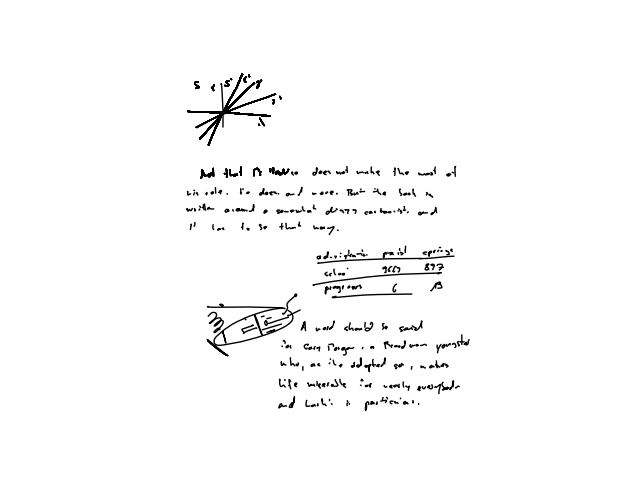 And that Mr Meadows does not make the most of
his role. He does and more. But the book is
written around a somewhat dizzy cartoonist and
it has to be that way.
administration parish
school 9669 897
programs 6 13
A word should be said
for Gary Morgan, a Broadway youngster
who, as the adopted son, makes
life miserable for nearly everybody
and Lachlin in particular.